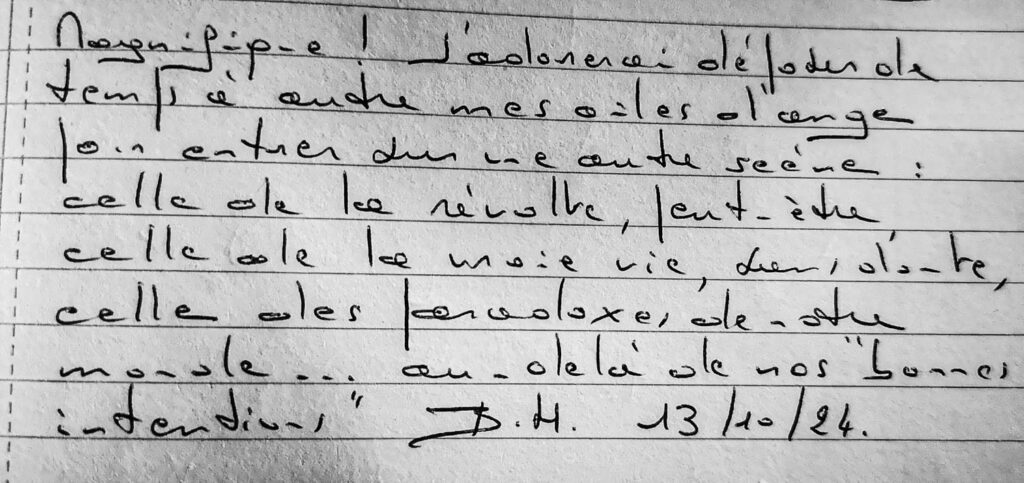 Magnifique ! J'adorerai déposer de
temps à autre mes ailes d'ange
pour entrer dans une autre scène :
celle de la révolte, peut-être
celle de la vraie vie, sans doute,
celle des paradoxes de notre
monde ... au-delà de nos "bonnes
intentions" D.H. 13/10/24.